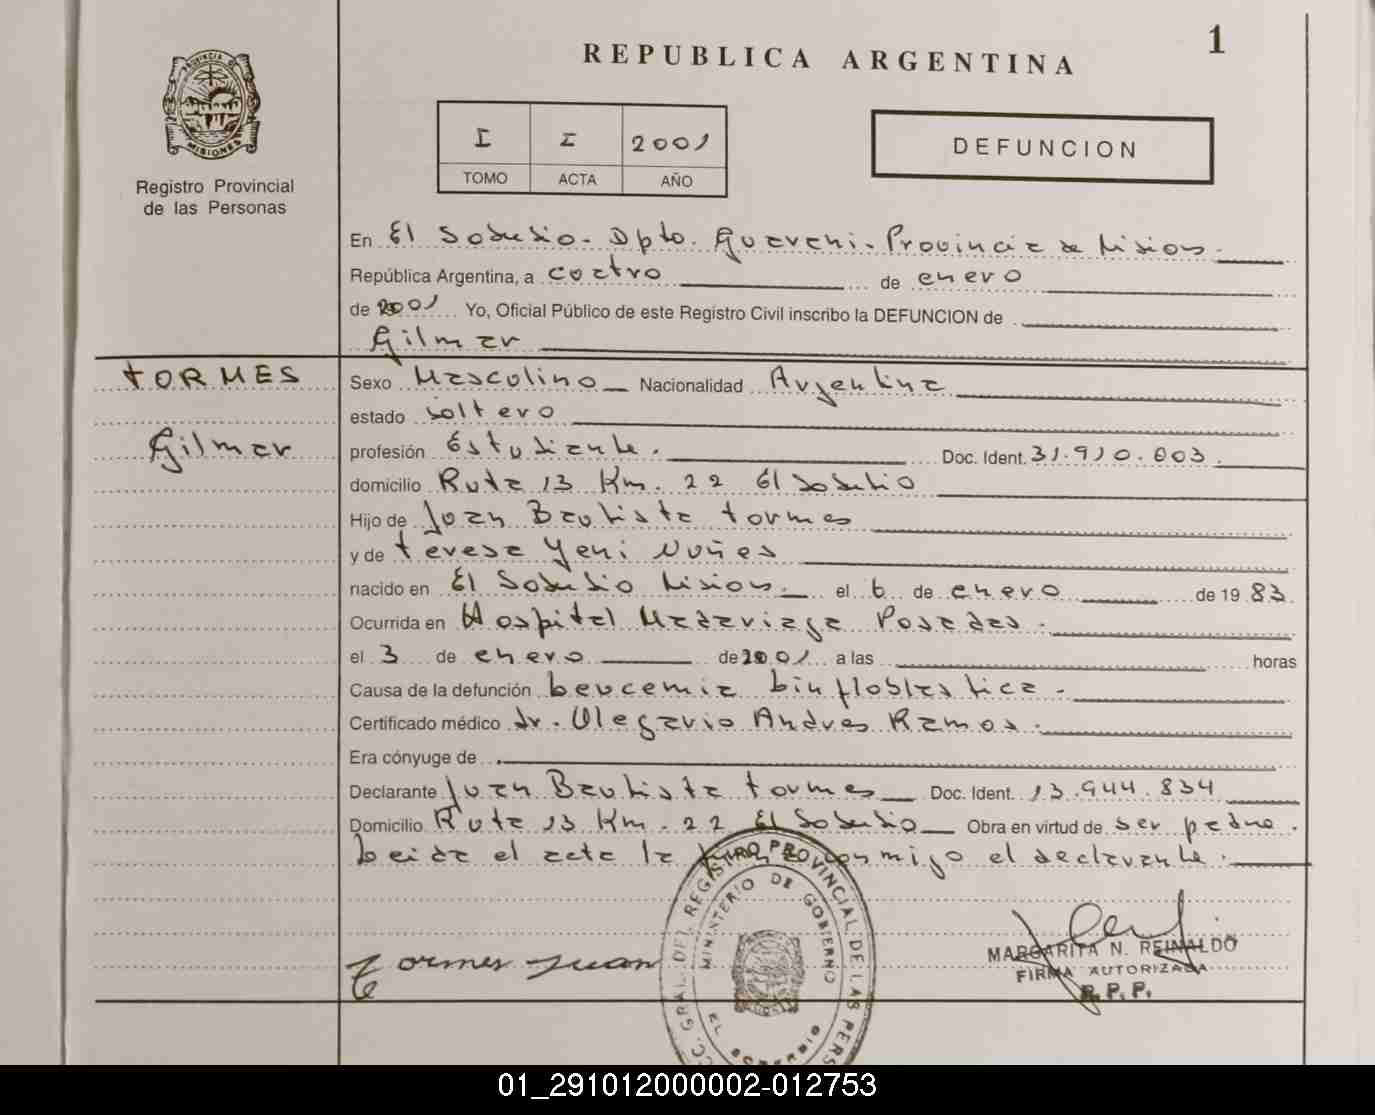 1
REPUBLICA ARGENTINA
PROVINCIA D
MISIONES
Registro Provincial
de las Personas
I I 2001
TOMO ACTA AÑO
DEFUNCION
En El Soberbio - Dpto. Guarani - Provincia de Misiones -
República Argentina, a cuatro de enero
de 2001 Yo, Oficial Público de este Registro Civil inscribo la DEFUNCION de
Gilmar
TORMES
Gilmar
Sexo Masculino Nacionalidad Argentina
estado soltero
profesión Estudiante. Doc. Ident. 31.910.003.
domicilio Ruta 13 Km. 22 El Soberbio
Hijo de Juan Bautista Tormes
y de Teresa Yeni Nuñes
nacido en El Soberbio Misiones el 6 de enero de 19 83
Ocurrida en Hospital Madariaga Posadas.
el 3 de enero de 2001 a las horas
Causa de la defunción Leucemia Linfloblastica -
Certificado médico dr. Olegario Andres Ramos.
Era cónyuge de
Declarante Juan Bautista Tormes Doc. Ident. 13.944.834
Domicilio Ruta 13 Km. 22 El Soberbio Obra en virtud de ser padre.
Leida el acta la conmigo el declarante.
Tormes Juan
MARGARITA N. REINALDO
FIRMA AUTORIZADA
R. P. P.
CC. GRAL. DEL REGISTRO PROVINCIAL DE LAS PERS
MINISTERIO DE GOBIERNO
EL SOBERBIO
01_291012000002-012753